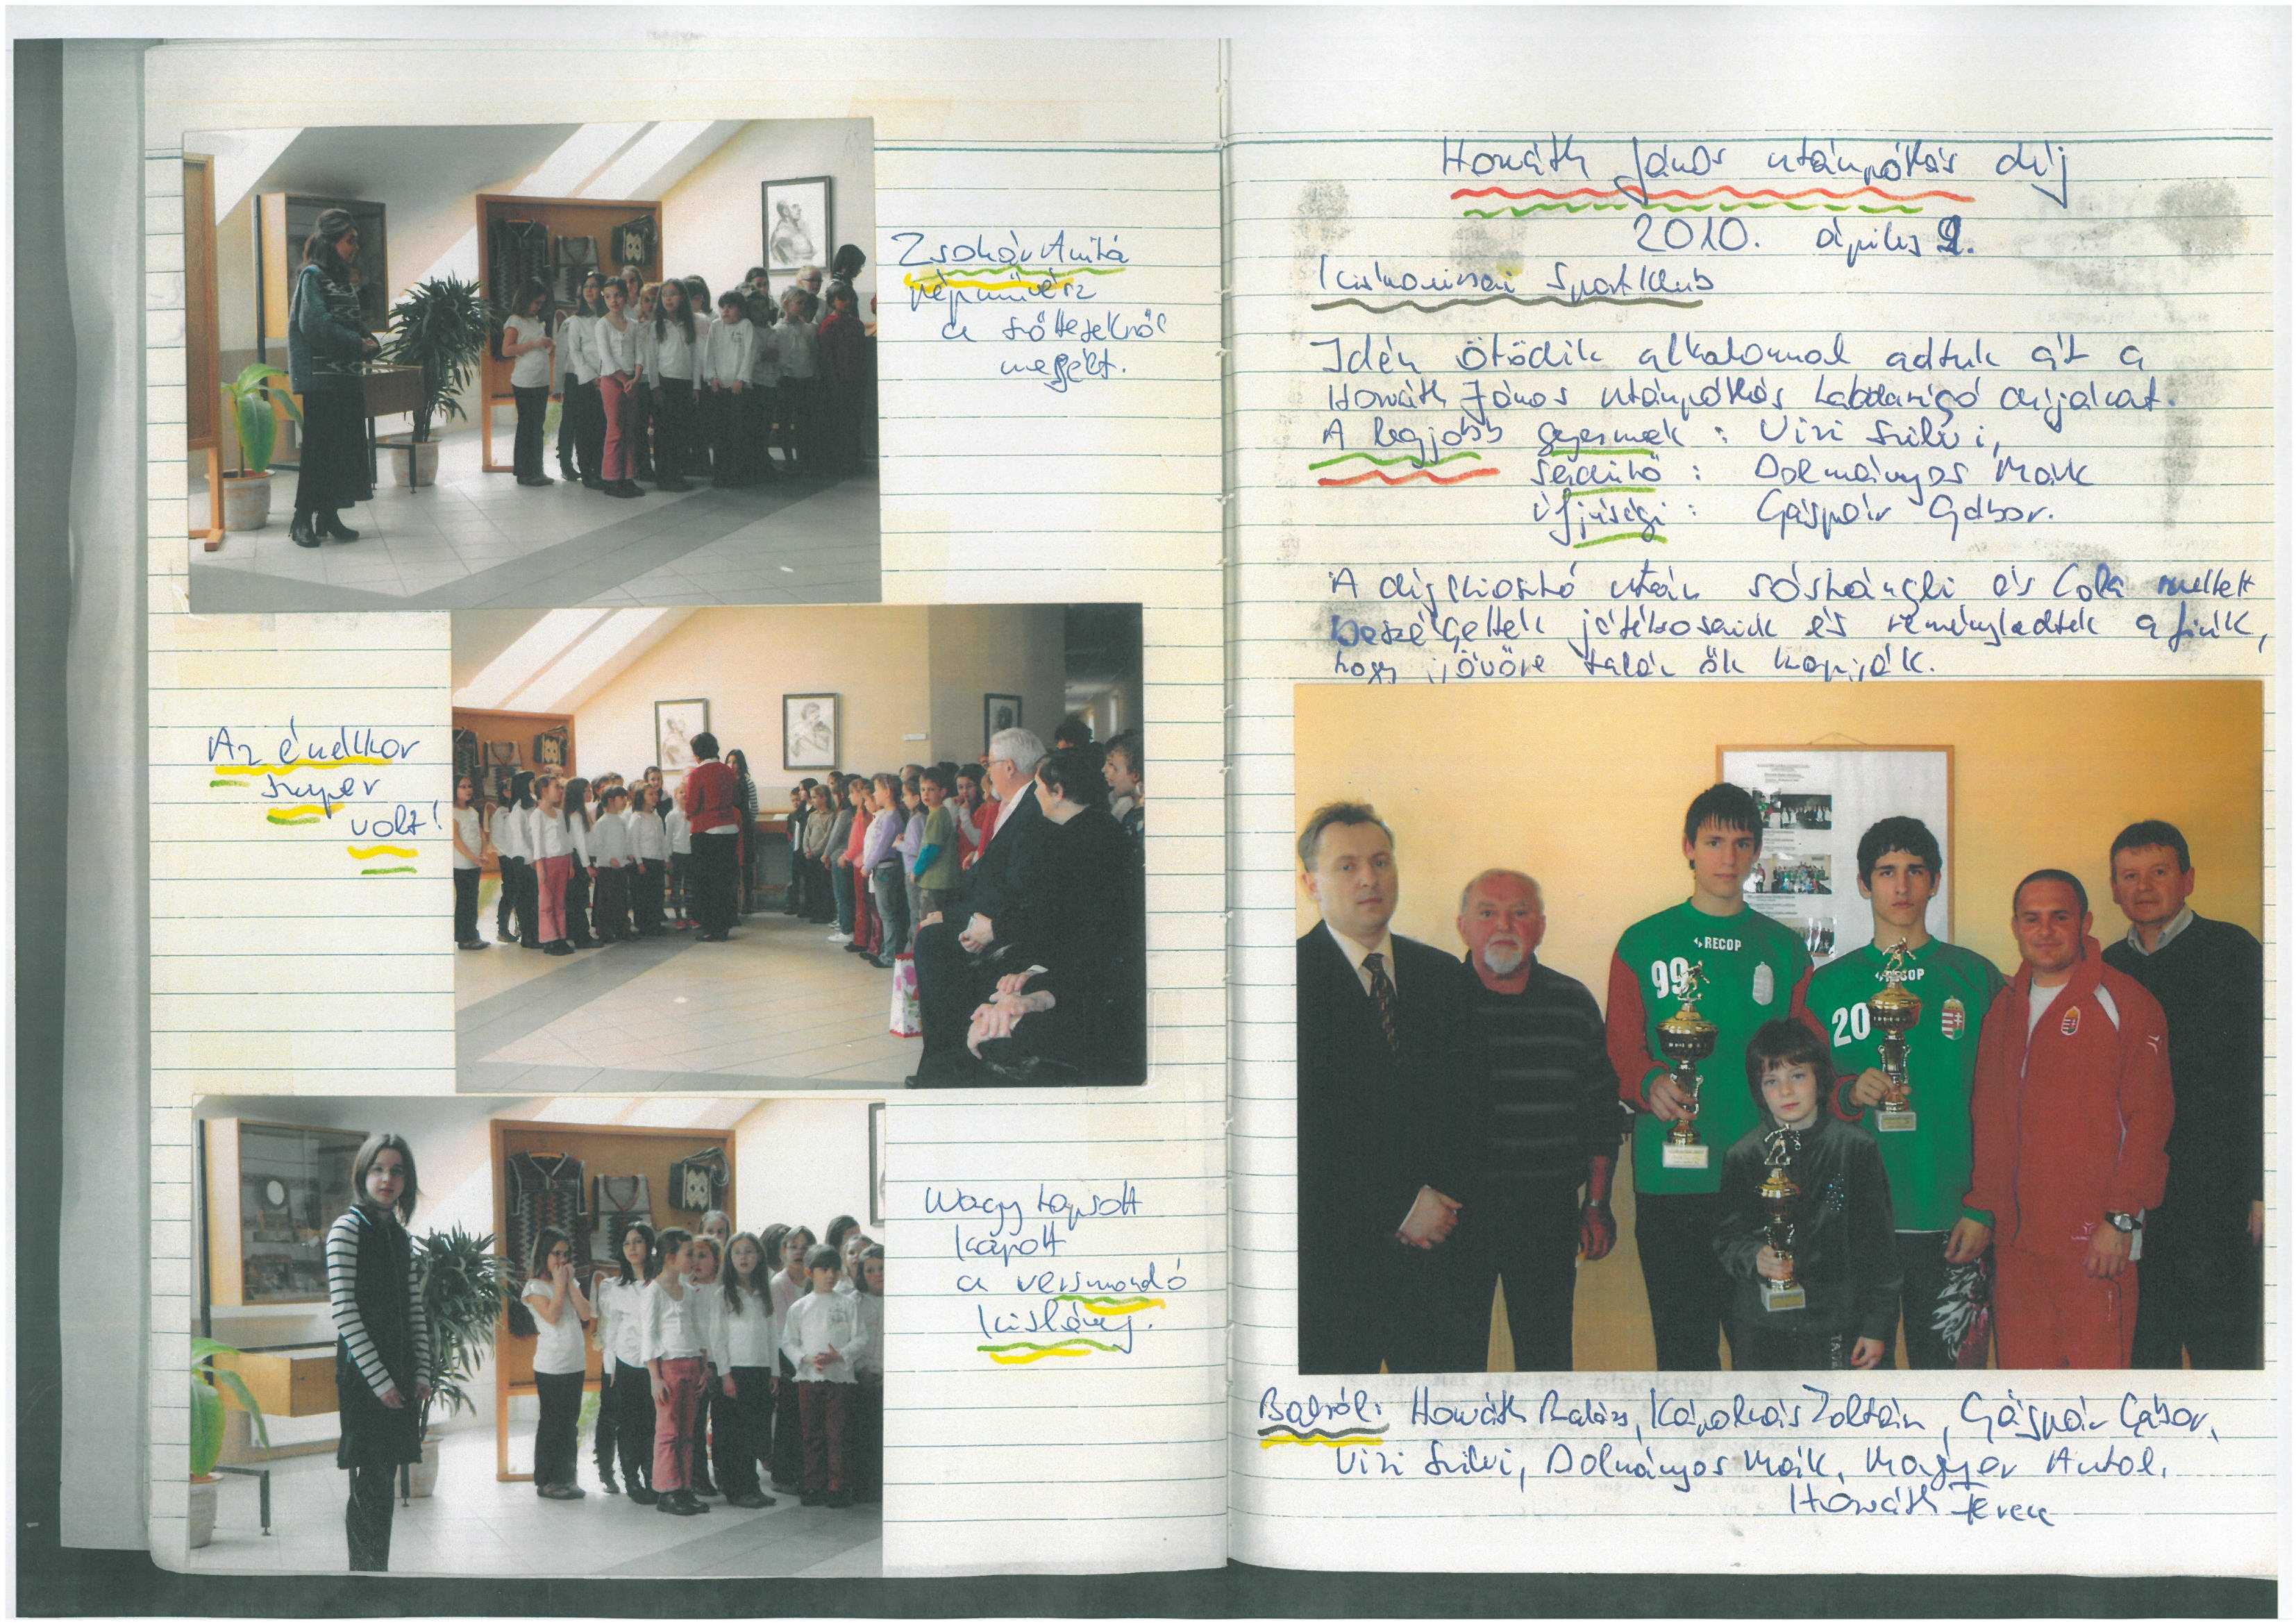 Zsohár Anita
népművész
a szőttesekről
mesélt.
Az énekkar
szuper
volt!
Nagy tapsolt
kapott
a versmondó
kislány.
Horváth János utánpótlás díj
2010. április
Kiskanizsai Sportklub
Idén ötödik alkalommal adtuk át a
Horváth János utánpótlás labdarúgó díjakat.
A legjobb gyermek: Vizi Szilvi,
serdülő: Dolmányos Márk
ifjúsági: Gáspár Gábor.
A díjkiosztó után sóstángli és Cola mellett
beszélgettek játékosaink és reménykedtek a fiúk,
hogy jövőre talán ők kapják.
RECOP
99
RECOP
20
Balról: Horváth Balázs, Kápolnás Zoltán, Gáspár Gábor,
Vizi Szilvi, Dolmányos Márk, Magyar Antal,
Horváth Ferenc